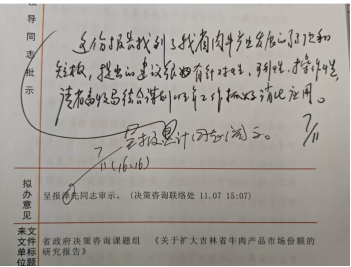 领导同志批示
这份报告找到了我省肉牛产业发展的弱项和
短板，提出的建议很好有针对性、可行性、操作性，
请省畜牧局结合谋划明年工作抓好消化应用。
7/11
7/11 (16:16)
拟办意见
呈报泽先同志审示。（决策咨询联络处 11.07 15:07）
来文单位
文件标题
省政府决策咨询课题组 《关于扩大吉林省牛肉产品市场份额的
研究报告》